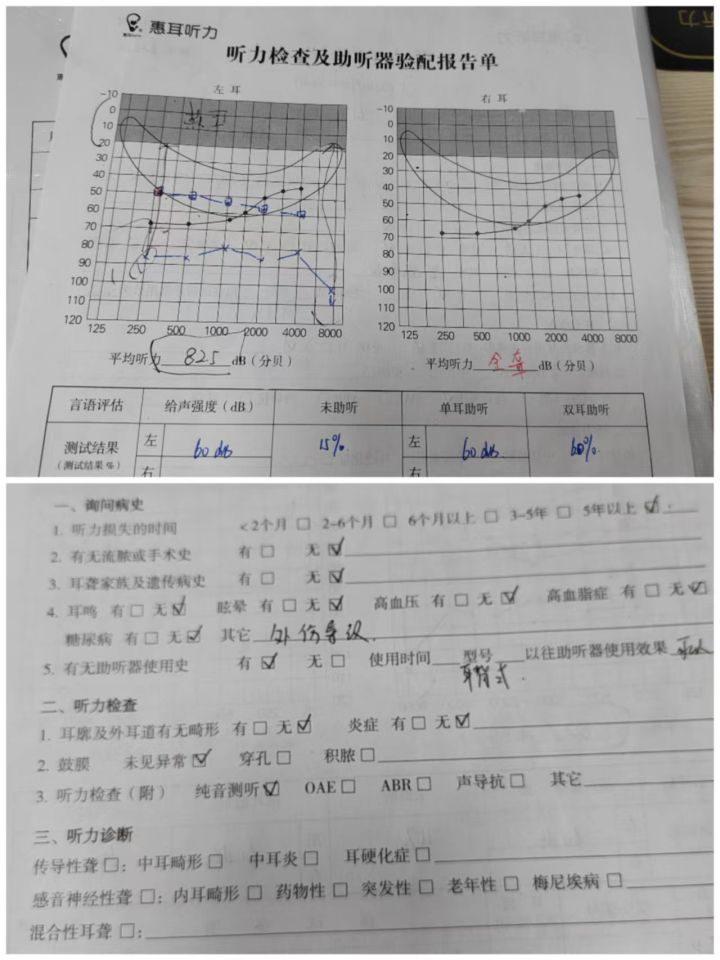 惠耳听力
听力检查及助听器验配报告单
左耳 右耳
-10 -10
0 0
10 10
20 20
30 30
40 40
50 50
60 60
70 70
80 80
90 90
100 100
110 110
120 120
125 250 500 1000 2000 4000 8000 125 250 500 1000 2000 4000 8000
平均听力 825 dB（分贝） 平均听力 全聋 dB（分贝）
言语评估 给声强度（dB） 未助听 单耳助听 双耳助听
测试结果 左 60 dB 15% 左 60 dB 60%
（测试结果%） 右 右
一、询问病史
1. 听力损失的时间 <2个月 □ 2-6个月 □ 6个月以上 □ 3-5年 □ 5年以上 ☑
2. 有无流脓或手术史 有 □ 无 ☑
3. 耳聋家族及遗传病史 有 □ 无 ☑
4. 耳鸣 有 □ 无 ☑ 眩晕 有 □ 无 ☑ 高血压 有 □ 无 ☑ 高血脂症 有 □ 无 ☑
糖尿病 有 □ 无 ☑ 其它 外伤导致.
5. 有无助听器使用史 有 ☑ 无 □ 使用时间 型号 以往助听器使用效果 可以
耳背式.
二、听力检查
1. 耳廓及外耳道有无畸形 有 □ 无 ☑ 炎症 有 □ 无 ☑
2. 鼓膜 未见异常 ☑ 穿孔 □ 积脓 □
3. 听力检查（附） 纯音测听 ☑ OAE □ ABR □ 声导抗 □ 其它
三、听力诊断
传导性聋 □：中耳畸形 □ 中耳炎 □ 耳硬化症 □
感音神经性聋 □：内耳畸形 □ 药物性 □ 突发性 □ 老年性 □ 梅尼埃病 □
混合性耳聋 □：